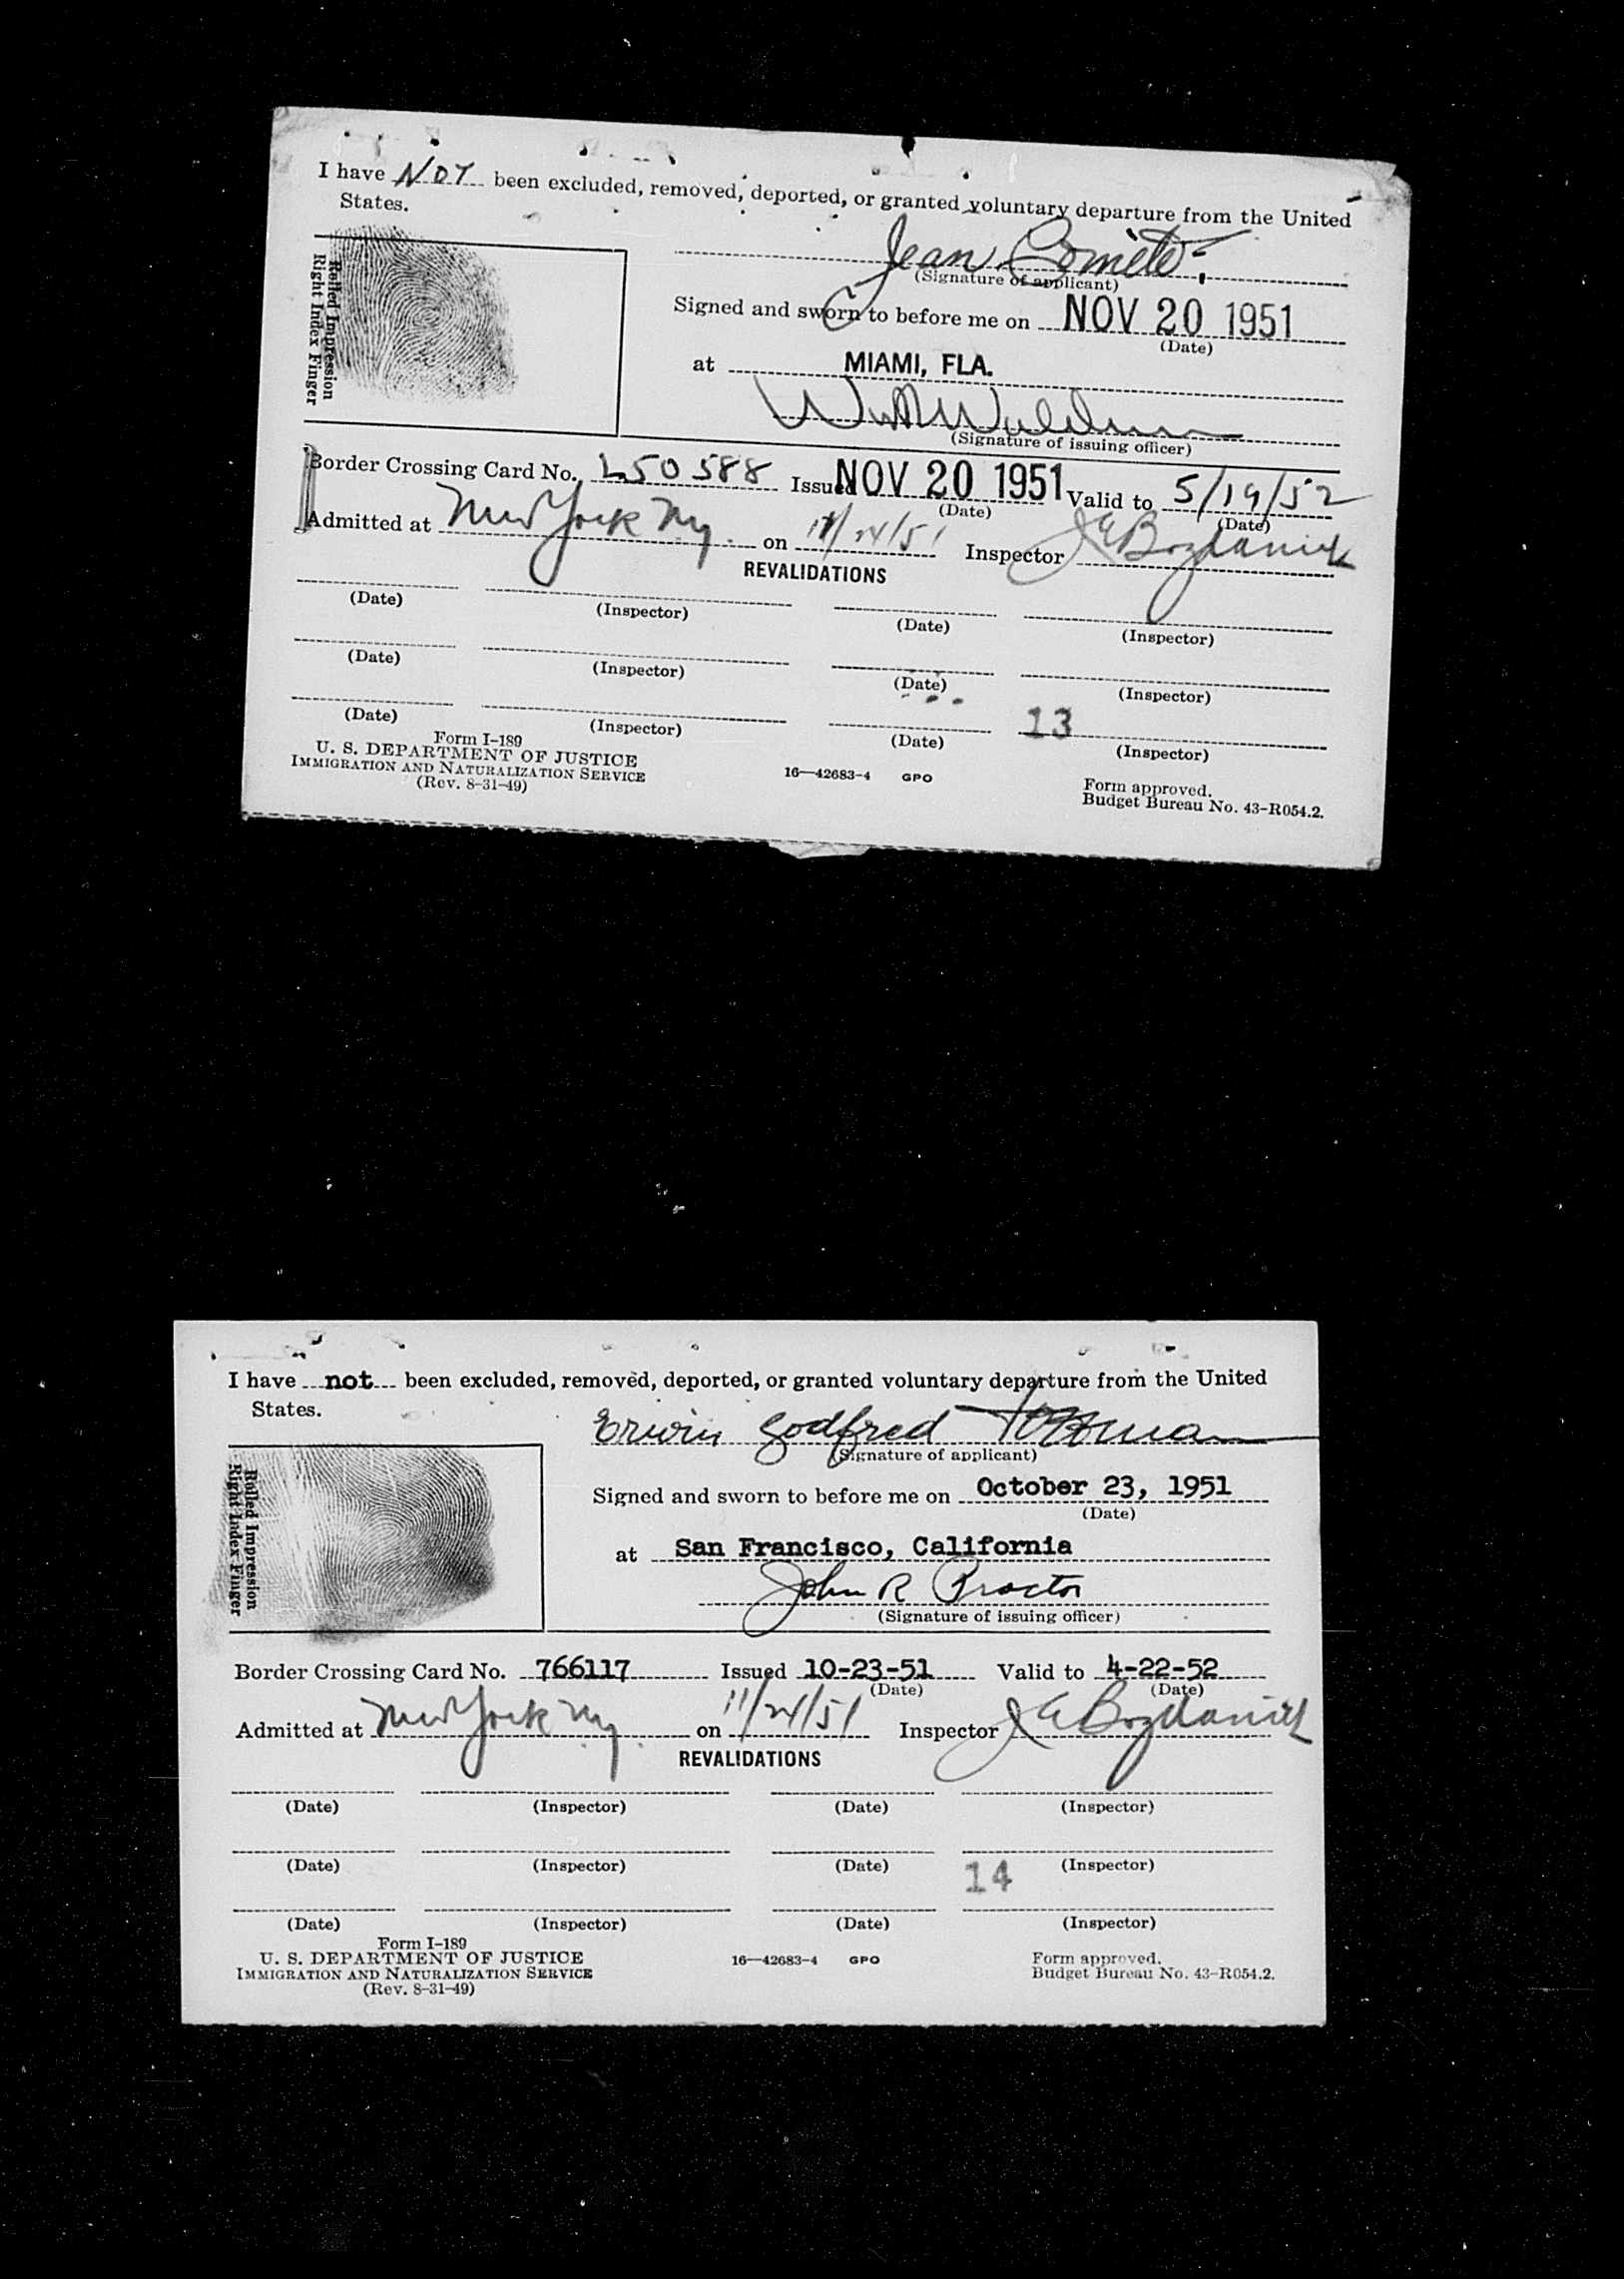 I have NOT been excluded, removed, deported, or granted voluntary departure from the United
States.
Jean
(Signature of applicant)
Rolled Impression
Right Index Finger
Signed and sworn to before me on NOV 20 1951
(Date)
at MIAMI, FLA.
(Signature of issuing officer)
Border Crossing Card No. L50588 Issued NOV 20 1951 Valid to 5/19/52
(Date) (Date)
Admitted at New York Ny. on 11/24/51 Inspector J E Bogdaniek
REVALIDATIONS
(Date) (Inspector) (Date) (Inspector)
(Date) (Inspector) (Date) (Inspector)
13
(Date) (Inspector) (Date) (Inspector)
Form I-189
U. S. DEPARTMENT OF JUSTICE
IMMIGRATION AND NATURALIZATION SERVICE
(Rev. 8-31-49)
16—42683-4 GPO
Form approved.
Budget Bureau No. 43-R054.2.
I have not been excluded, removed, deported, or granted voluntary departure from the United
States.
Erwin Godfred
(Signature of applicant)
Rolled Impression
Right Index Finger
Signed and sworn to before me on October 23, 1951
(Date)
at San Francisco, California
John R Proctor
(Signature of issuing officer)
Border Crossing Card No. 766117 Issued 10-23-51 Valid to 4-22-52
(Date) (Date)
Admitted at New York Ny. on 11/24/51 Inspector J E Bogdaniek
REVALIDATIONS
(Date) (Inspector) (Date) (Inspector)
(Date) (Inspector) (Date) 14 (Inspector)
(Date) (Inspector) (Date) (Inspector)
Form I-189
U. S. DEPARTMENT OF JUSTICE
IMMIGRATION AND NATURALIZATION SERVICE
(Rev. 8-31-49)
16—42683-4 GPO
Form approved.
Budget Bureau No. 43-R054.2.